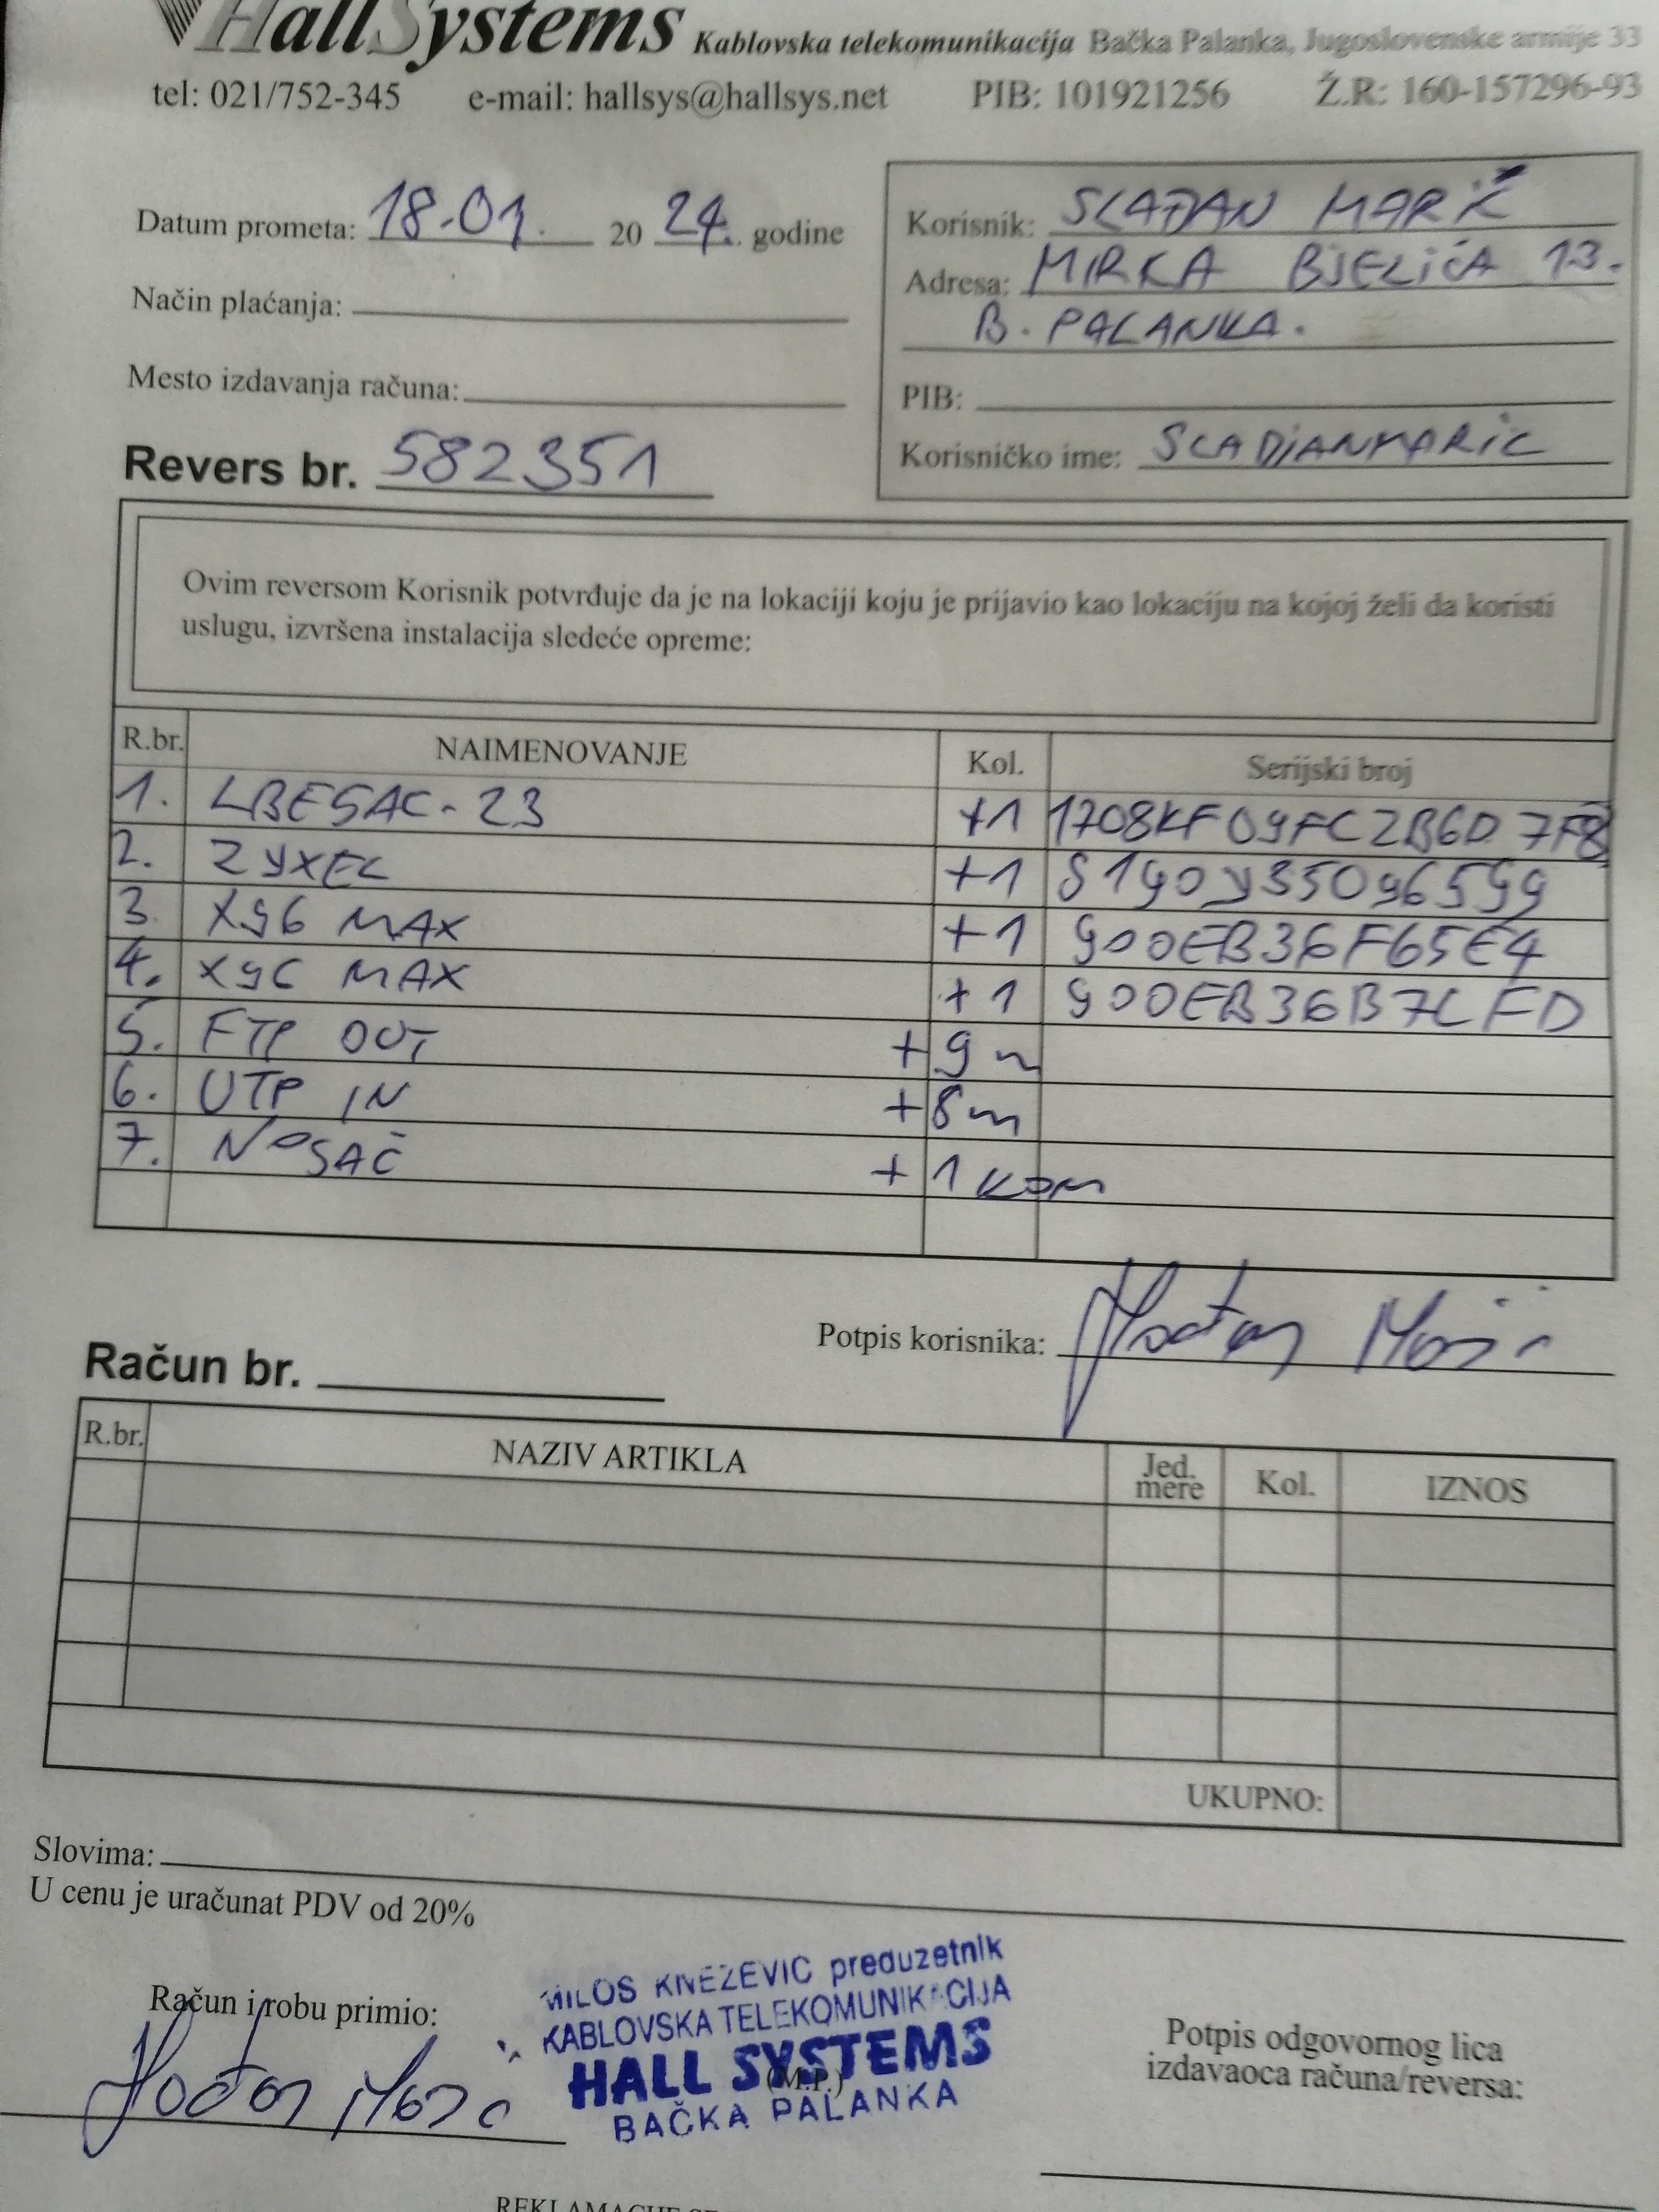 HallSystems Kablovska telekomunikacija Bačka Palanka, Jugoslovenske armije 33
tel: 021/752-345 e-mail: hallsys@hallsys.net PIB: 101921256 Ž.R: 160-157296-93
Datum prometa: 18.01. 20 24. godine
Način plaćanja:
Mesto izdavanja računa:
Revers br. 582351
Korisnik: SLAĐAN MARIĆ
Adresa: MIRKA BJELIĆA 13.
B. PALANKA.
PIB:
Korisničko ime: SLADJANMARIC
Ovim reversom Korisnik potvrđuje da je na lokaciji koju je prijavio kao lokaciju na kojoj želi da koristi
uslugu, izvršena instalacija sledeće opreme:
R.br. NAIMENOVANJE Kol. Serijski broj
1. LBE5AC-23 +1 1708KF09FC2B6D7F8
2. ZYXEL +1 S190Y35096599
3. X96 MAX +1 900EB36F65E4
4. X96 MAX +1 900EB36B7CFD
5. FTP OUT +9m
6. UTP IN +8m
7. NOSAČ +1 KOM
Potpis korisnika:
Račun br.
R.br. NAZIV ARTIKLA Jed. mere Kol. IZNOS
UKUPNO:
Slovima:
U cenu je uračunat PDV od 20%
Račun i robu primio:
MILOŠ KNEŽEVIĆ preduzetnik
KABLOVSKA TELEKOMUNIKACIJA
HALL SYSTEMS
(M.P.)
BAČKA PALANKA
Potpis odgovornog lica
izdavaoca računa/reversa: